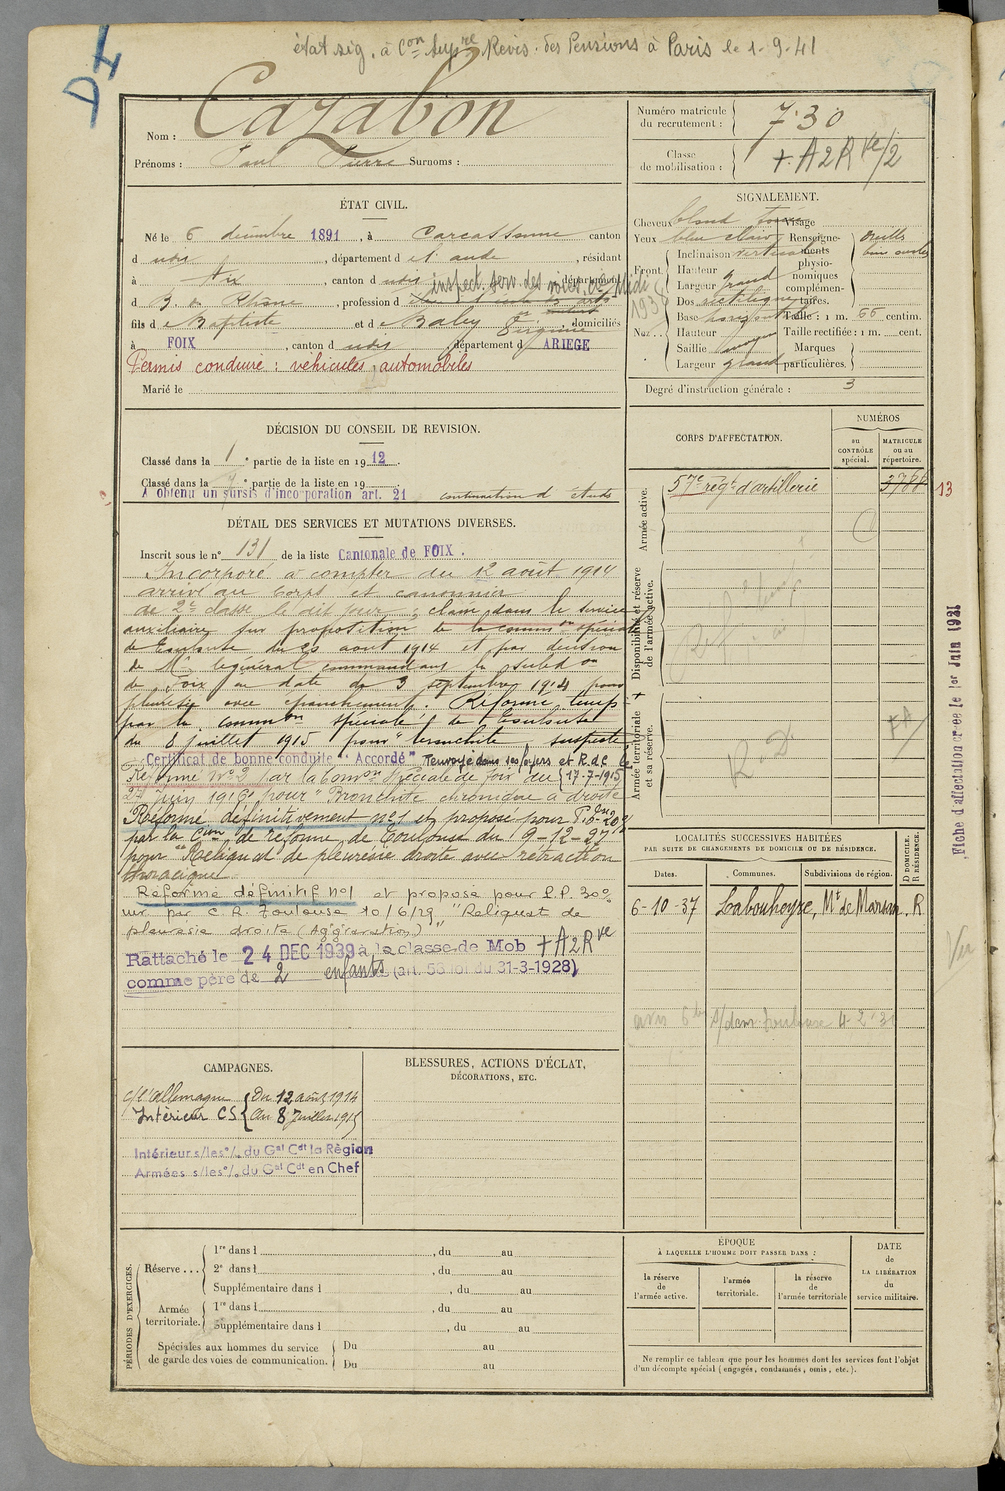 état sig. à Con Supre Revis. des Pensions à Paris le 1-9-41
Nom : Cazabon
Prénoms : Paul Pierre Surnoms :
Numéro matricule du recrutement : 730
Classe de mobilisation : + A2Rve/2
ÉTAT CIVIL.
Né le 6 décembre 1891, à Carcassonne canton
d udit, département d e l'aude, résidant
à Aix, canton d udit, département
inspect. serv. des voies, de Midi
193
d B. du Rhône, profession d
fils d e Baptiste et d e Baley Virginie, domiciliés
à FOIX, canton d udit, département d ARIEGE
Permis conduire : véhicules automobiles
Marié le
SIGNALEMENT.
Cheveux blond Visage
Yeux bleu clair
Front
Inclinaison verticale
Hauteur grand
Largeur grand
Nez
Dos rectiligne
Base horizontale
Hauteur
Saillie moyen
Largeur grand
Renseignements physionomiques complémentaires.
Taille : 1 m. 66 centim.
Taille rectifiée : 1 m. cent.
Marques particulières.
Degré d'instruction générale : 3
DÉCISION DU CONSEIL DE REVISION.
Classé dans la 1e partie de la liste en 1912.
Classé dans la e partie de la liste en 19
A obtenu un sursis d'incorporation art. 21 continuation d'études
CORPS D'AFFECTATION.
NUMÉROS
au CONTRÔLE spécial.
MATRICULE ou au répertoire.
Armée active.
57e régt d'artillerie 3788
13
Disponibilité et réserve de l'armée active.
Armée territoriale et sa réserve.
R. D.
Fiche d'affectation créée le 1er Juin 1931
DÉTAIL DES SERVICES ET MUTATIONS DIVERSES.
Inscrit sous le n° 131 de la liste Cantonale de FOIX.
Incorporé à compter du 12 août 1914
arrivé au Corps et canonnier
de 2e classe le dit jour ; classé dans le service
auxiliaire sur proposition de la common spéciale
de Toulouse du 29 août 1914 et par décision
de Mr le général commandant la subdon
de Foix en date du 3 septembre 1914 pour
pleurésie avec épanchement. Réformé temp.
par la common spéciale de Toulouse
du 8 juillet 1915 pour "bronchite suspecte"
Certificat de bonne conduite "Accordé" Renvoyé dans ses foyers et R.d.C. le 17-7-1915
Réformé No 2 par la Common Spéciale de Foix du
27 juin 1916 pour "Bronchite chronique à droite"
Réformé définitivement no1 et proposé pour P.
par la Com de réforme de Toulouse du 9-12-27
pour "Reliquat de pleurésie droite avec rétraction
thoracique.
Réforme définitif No1 et proposé pour P.P. 30%
par C.R. Toulouse 10/6/29 "Reliquat de
pleurésie droite (Aggravation)"
Rattaché le 24 DEC 1939 à la classe de Mob + A2Rve
comme père de 2 enfants (art. 58 loi du 31-3-1928)
LOCALITÉS SUCCESSIVES HABITÉES
PAR SUITE DE CHANGEMENTS DE DOMICILE OU DE RÉSIDENCE.
Dates. Communes. Subdivisions de région. D DOMICILE. R RÉSIDENCE.
6-10-37 Labouheyre, Mt de Marsan, R
avis 6 s/dom. Toulouse 4-2-3
CAMPAGNES.
c/ l'Allemagne
Intérieur CS { Du 12 août 1914
Au 8 Juillet 1915
Intérieur s/les o/. du Gal Cdt la Région
Armées s/les o/. du Gal Cdt en Chef
BLESSURES, ACTIONS D'ÉCLAT,
DÉCORATIONS, ETC.
PÉRIODES D'EXERCICES.
Réserve...
1re dans l , du au
2e dans l , du au
Supplémentaire dans l , du au
Armée territoriale.
1re dans l , du au
Supplémentaire dans l , du au
Spéciales aux hommes du service de garde des voies de communication.
Du au
Du au
ÉPOQUE
À LAQUELLE L'HOMME DOIT PASSER DANS :
la réserve de l'armée active.
l'armée territoriale.
la réserve de l'armée territoriale
DATE de LA LIBÉRATION du service militaire.
Ne remplir ce tableau que pour les hommes dont les services font l'objet
d'un décompte spécial (engagés, condamnés, omis, etc.).